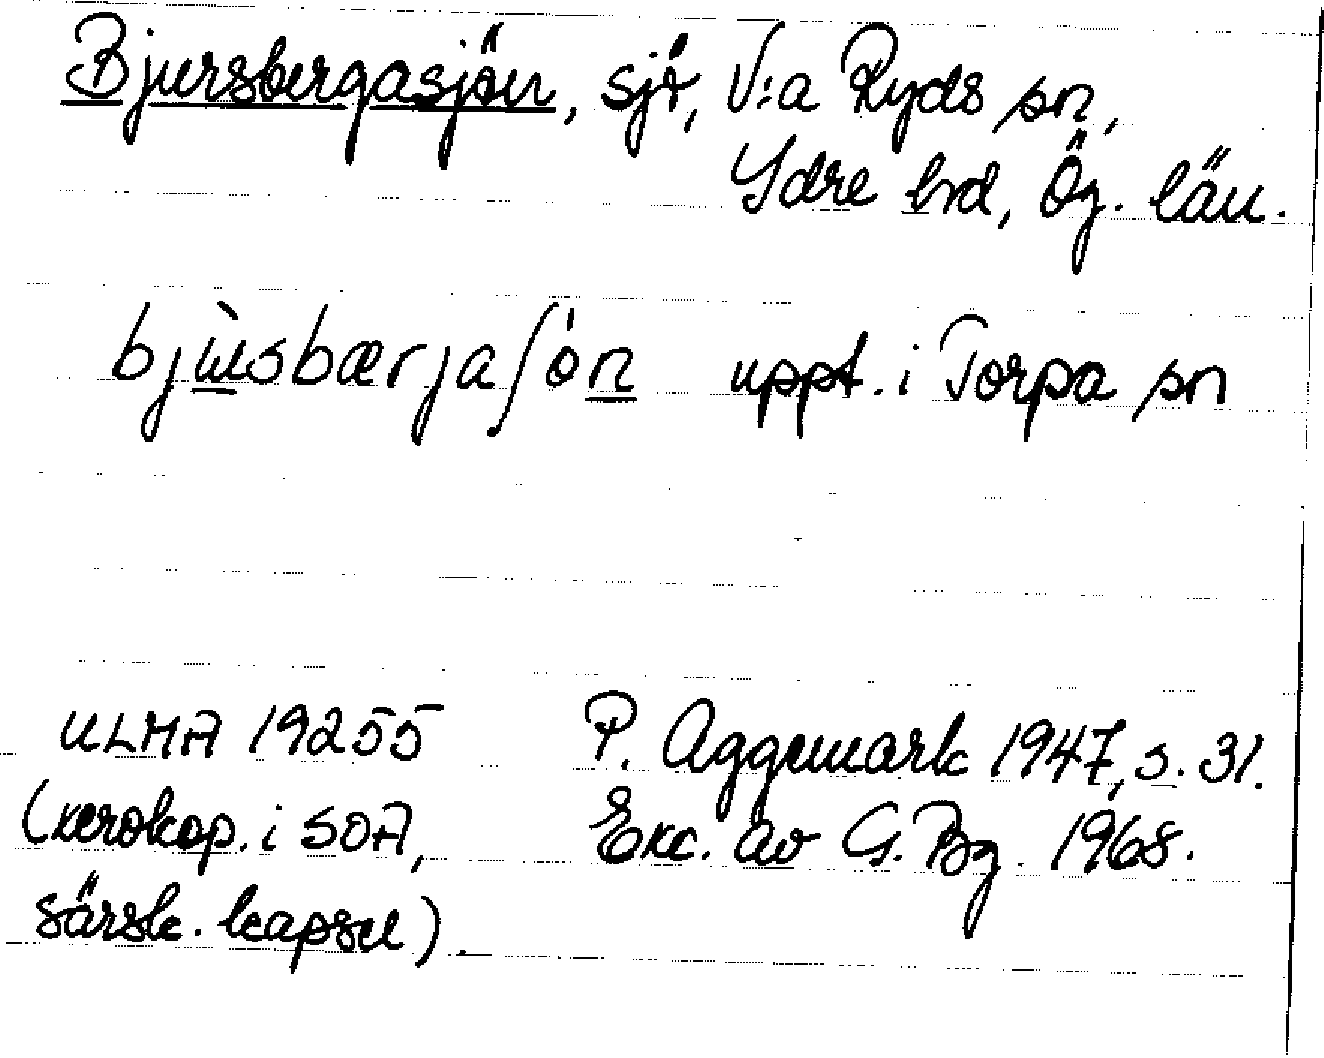 Bjursbergasjön, sjö, V:a Ryds sn,
Ydre hd, Ög. län.
bjùsbærjaʃón uppt. i Torpa sn
ULMA 19255 P. Aggemark 1947, s. 31.
(xerokop. i SOA, Exc. av G. Bg. 1968.
särsk. kapsel).